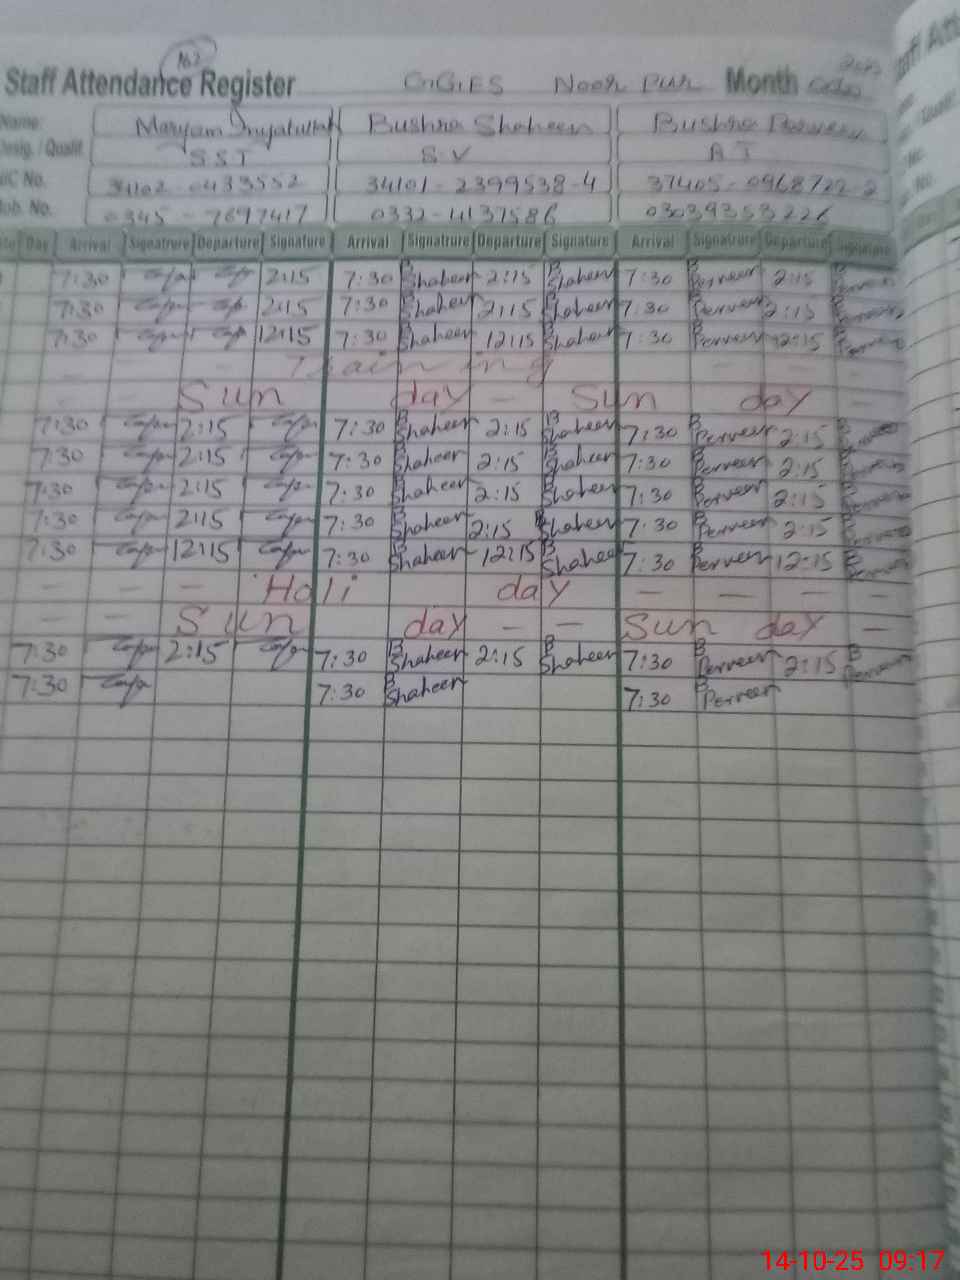 162
Staff Attendance Register GGES Noor Pur Month
Name: Maryam Inyatullah Bushra Shaheen Bushra Perveen
Desig. / Qualif. SST S.V A T
NIC No. 34102-0433552 34101-2399538-4 37405-0968722-2
Mob. No. 0345-7697417 0332-4137586 03039353226
Day Arrival Signatrure Departure Signature Arrival Signatrure Departure Signature Arrival Signatrure Departure Signature
7:30 2:15 7:30 B Shaheen 2:15 B Shaheen 7:30 B Perveen 2:15 B Perveen
7:30 2:15 7:30 B Shaheen 2:15 B Shaheen 7:30 B Perveen 2:15 B Perveen
7:30 12:15 7:30 B Shaheen 12:15 B Shaheen 7:30 B Perveen 12:15 B Perveen
- - Training - - -
- - Sun day - Sun day -
7:30 2:15 7:30 B Shaheen 2:15 B Shaheen 7:30 B Perveen 2:15 B Perveen
7:30 2:15 7:30 B Shaheen 2:15 B Shaheen 7:30 B Perveen 2:15 B Perveen
7:30 2:15 7:30 B Shaheen 2:15 B Shaheen 7:30 B Perveen 2:15 B Perveen
7:30 2:15 7:30 B Shaheen 2:15 B Shaheen 7:30 B Perveen 2:15 B Perveen
7:30 12:15 7:30 B Shaheen 12:15 B Shaheen 7:30 B Perveen 12:15 B Perveen
- - - Holi day - - - -
- - Sun day - - Sun day -
7:30 2:15 7:30 B Shaheen 2:15 B Shaheen 7:30 B Perveen 2:15 B Perveen
7:30 7:30 B Shaheen 7:30 B Perveen
14-10-25 09:17